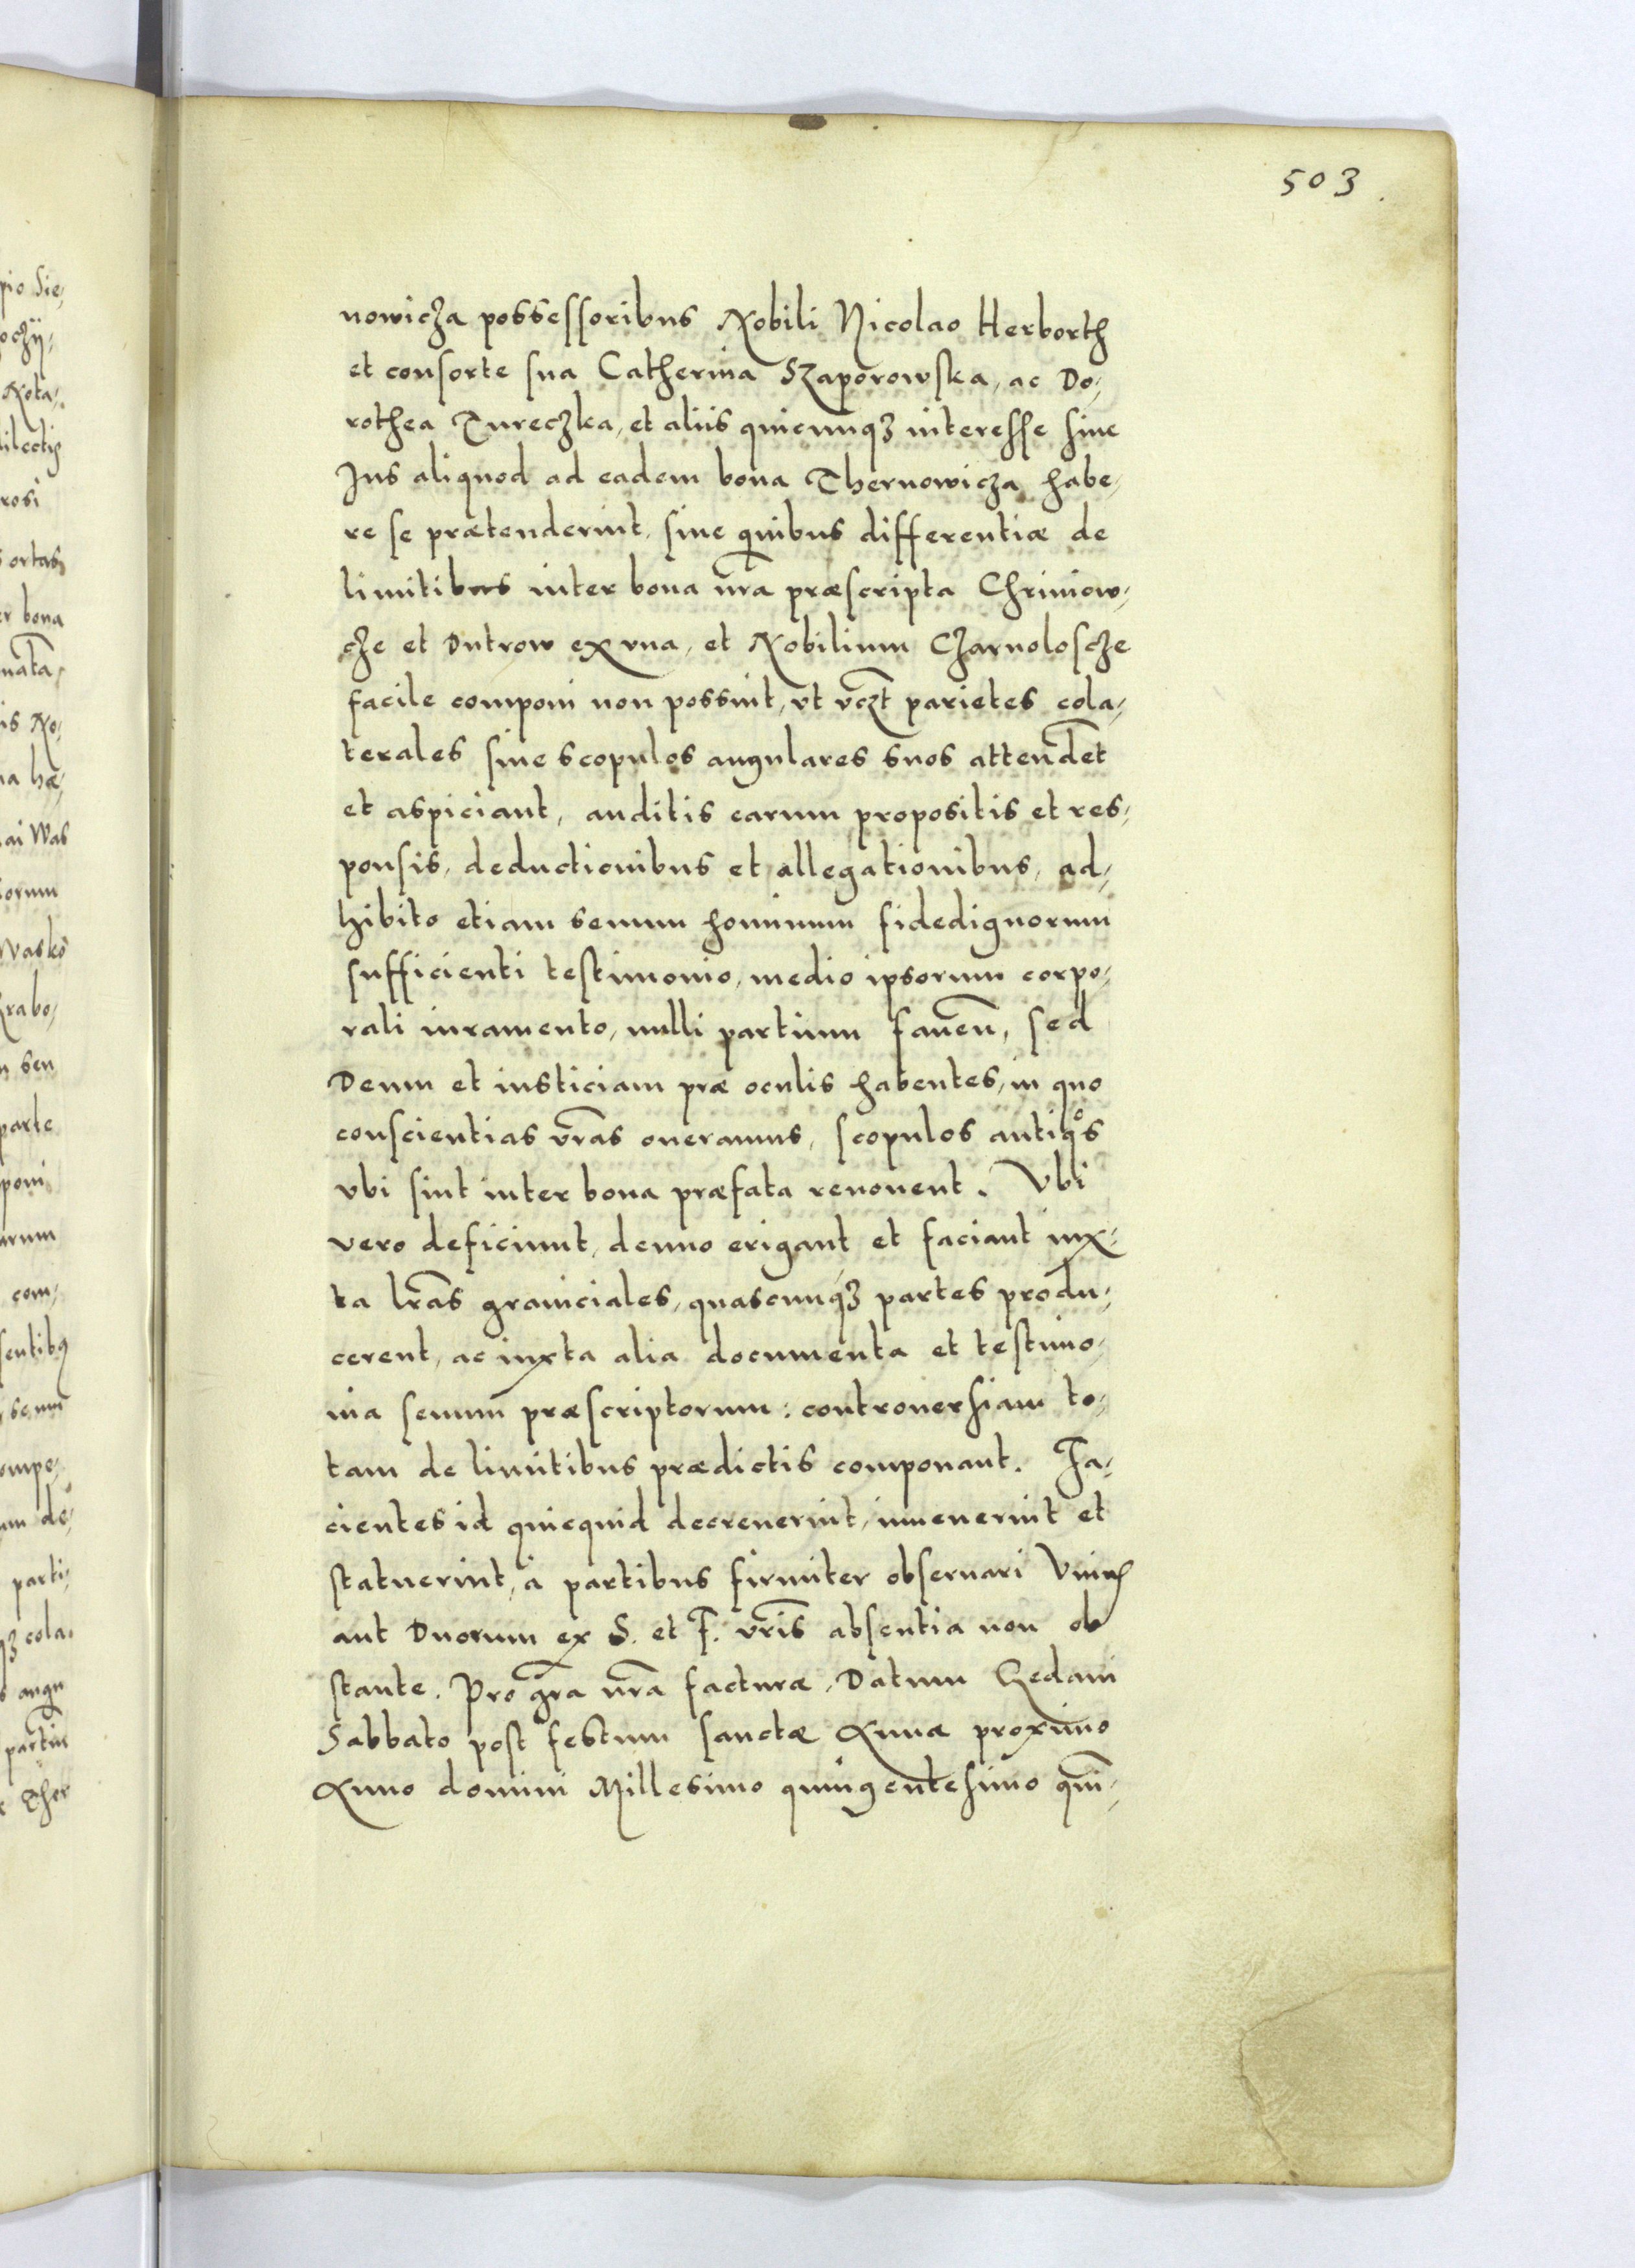 503
nowicza possessoribus Nobili Nicolao Herborth
et consorte sua Catherina Szaporowska, ac Do,
rothea Tureczka, et aliis quicunqȝ interesse siue
Jus aliquod ad eadem bona Thernowicza habe,
re se prætenderint, sine quibus differentiæ de
limitibus inter bona nr̃a præscripta Chriniow,
cze et Dutrow ex vna, et Nobilium Czarnoloscze
facile componi non possint, vt vcꝫt parietes cola,
terales siue scopulos angulares suos attendẽt
et aspiciant, auditis earum propositis et res,
ponsis, deductionibus et allegationibus, ad,
hibito etiam senum hominum fidedignorum
sufficienti testimonio, medio ipsorum corpo,
rali iuramento, nulli partium fauen̄, sed
Deum et iusticiam præ oculis habentes, in quo
conscientias vr̃as oneramus, scopulos antiqͦs
vbi sint inter bona præfata renouent. Vbi
vero deficiunt, denuo erigant et faciant iux,
ta lr̃as graniciales, quascunqȝ partes produ,
cerent, ac iuxta alia documenta et testimo,
nia senum præscriptorum: controuersiam to,
tam de limitibus prædictis componant. Fa,
cientes id quicquid decreuerint, inuenerint et
statuerint, a partibus firmiter obseruari Vniꝰ
aut Duorum ex S. et F. vr̃is absentia non ob
stante. Pro gr̃a nr̃a facturæ. Datum Gedani
Sabbato post festum sanctæ Annæ proximo
Anno domini Millesimo quingentesimo quin̄,
pio Sie,
oczÿ,
Nota,
ilectis
rosi
ortas
er bona
nata,
is No,
na hæ,
ai Was
orum
Wasko
rabo,
sen
parte
poni
arum
com,
sentibꝰ
senum
ompo,
um de,
parti,
qȝ cola,
angu
partiũ
Ther